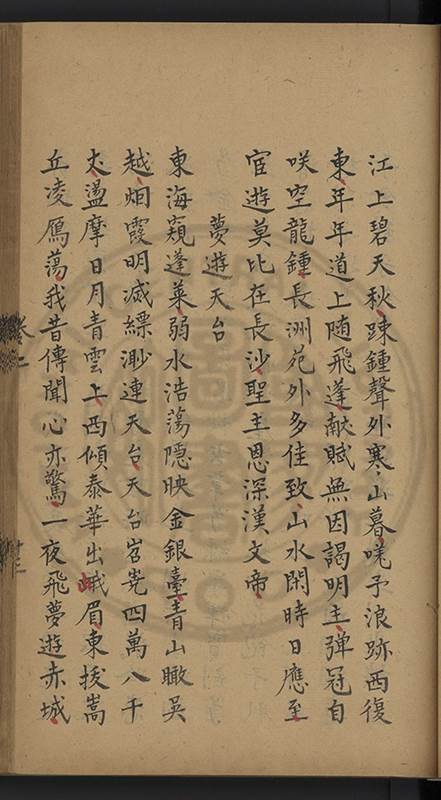 江上碧天秋踈鍾聲外寒山暮嗟予浪跡西復
東年年道上随飛蓬獻賦無因謁明主彈冠自
咲空龍鍾長洲苑外多佳致山水閑時日應至
宦遊莫比在長沙聖主恩深漢文帝
夢遊天台
東海窺蓬萊弱水浩蕩隱映金銀臺青山瞰吴
越烟霞明滅縹渺連天台天台岧嶤四萬八千
丈盪摩日月青雲上西傾泰華出峨眉東拔嵩
丘凌鴈蕩我昔傳聞心亦驚一夜飛夢遊赤城